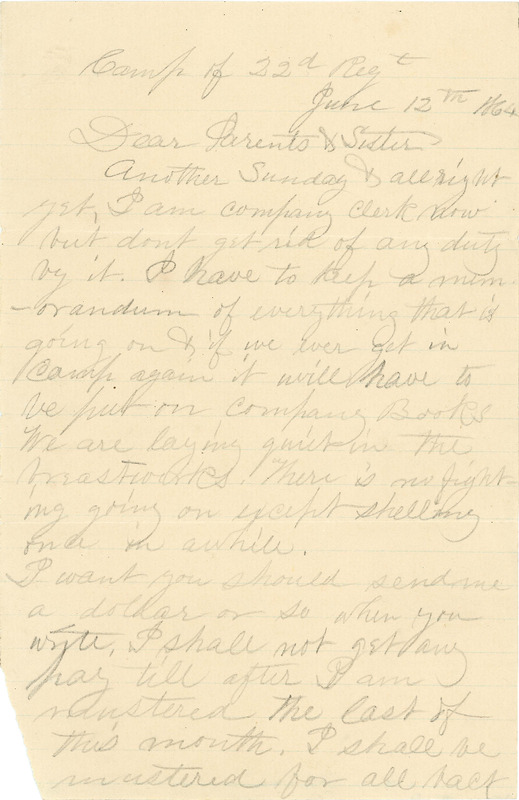 Camp of 22d Regt
June 12th 1864
Dear Parents & Sister
Another Sunday & all right
yet, I am company clerk now
but dont get rid of any duty
by it. I have to keep a mem
-orandum of everything that is
going on & if we ever get in
Camp again it will have to
be put on company Books
We are laying quiet in the
breastworks. There is no fight-
ing going on except shelling
once in awhile.
I want you should send me
a dollar or so when you
write. I shall not get any
pay till after I am
mustered the last of
this month. I shall be
mustered for all back